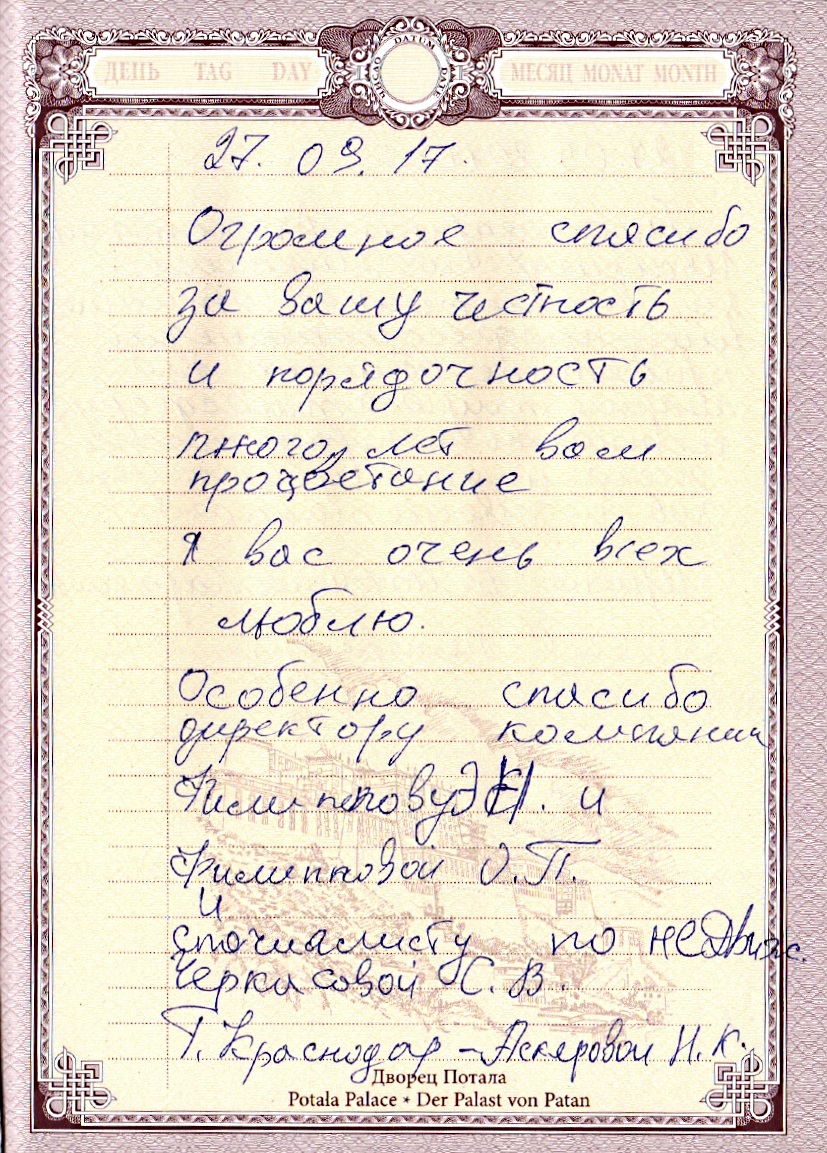 ДЕНЬ TAG DAY DATUM МЕСЯЦ MONAT MONTH
27. 09. 17.
Огромное спасибо
за вашу честность
и порядочность
много лет вам
процветание
я вас очень всех
люблю.
Особенно спасибо
директору компании
и
Филипповой О.П.
и
спочиалисту по недвиж.
Черкасовой С. В.
Г. Краснодар – Аскеровой Н. К.
Дворец Потала
Potala Palace * Der Palast von Patan